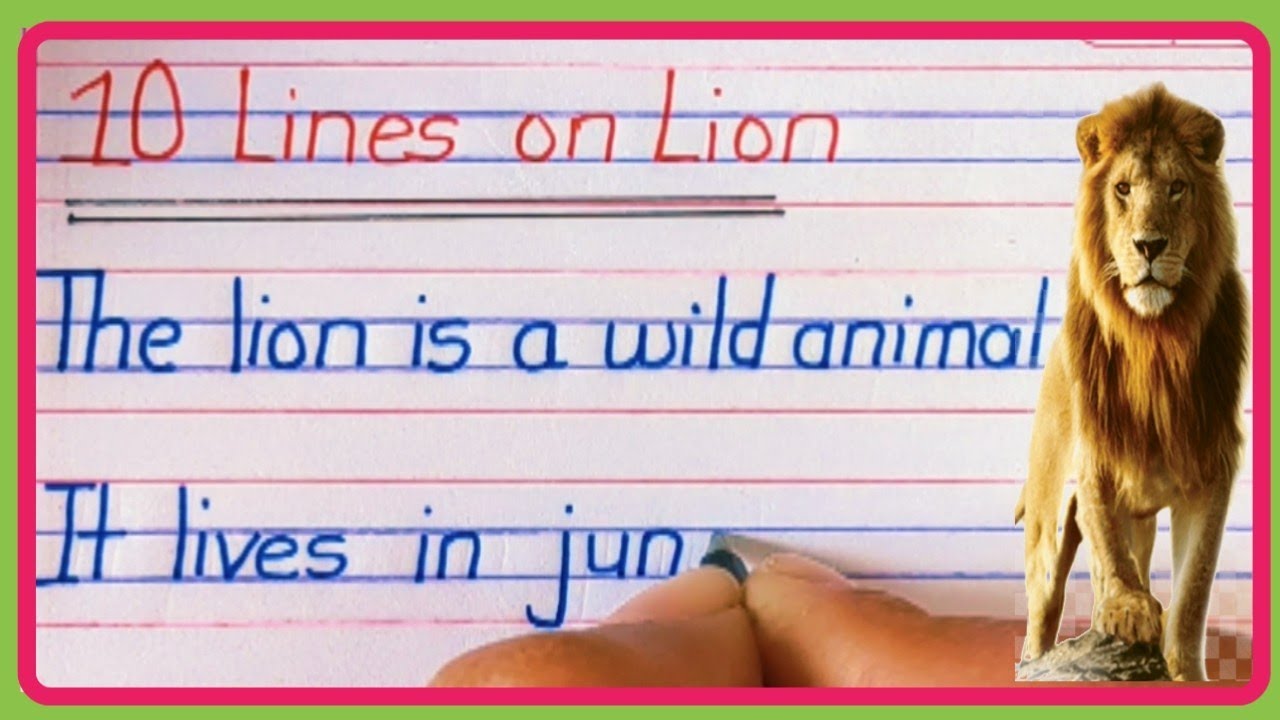 10 Lines on Lion
The lion is a wild animal
It lives in jun